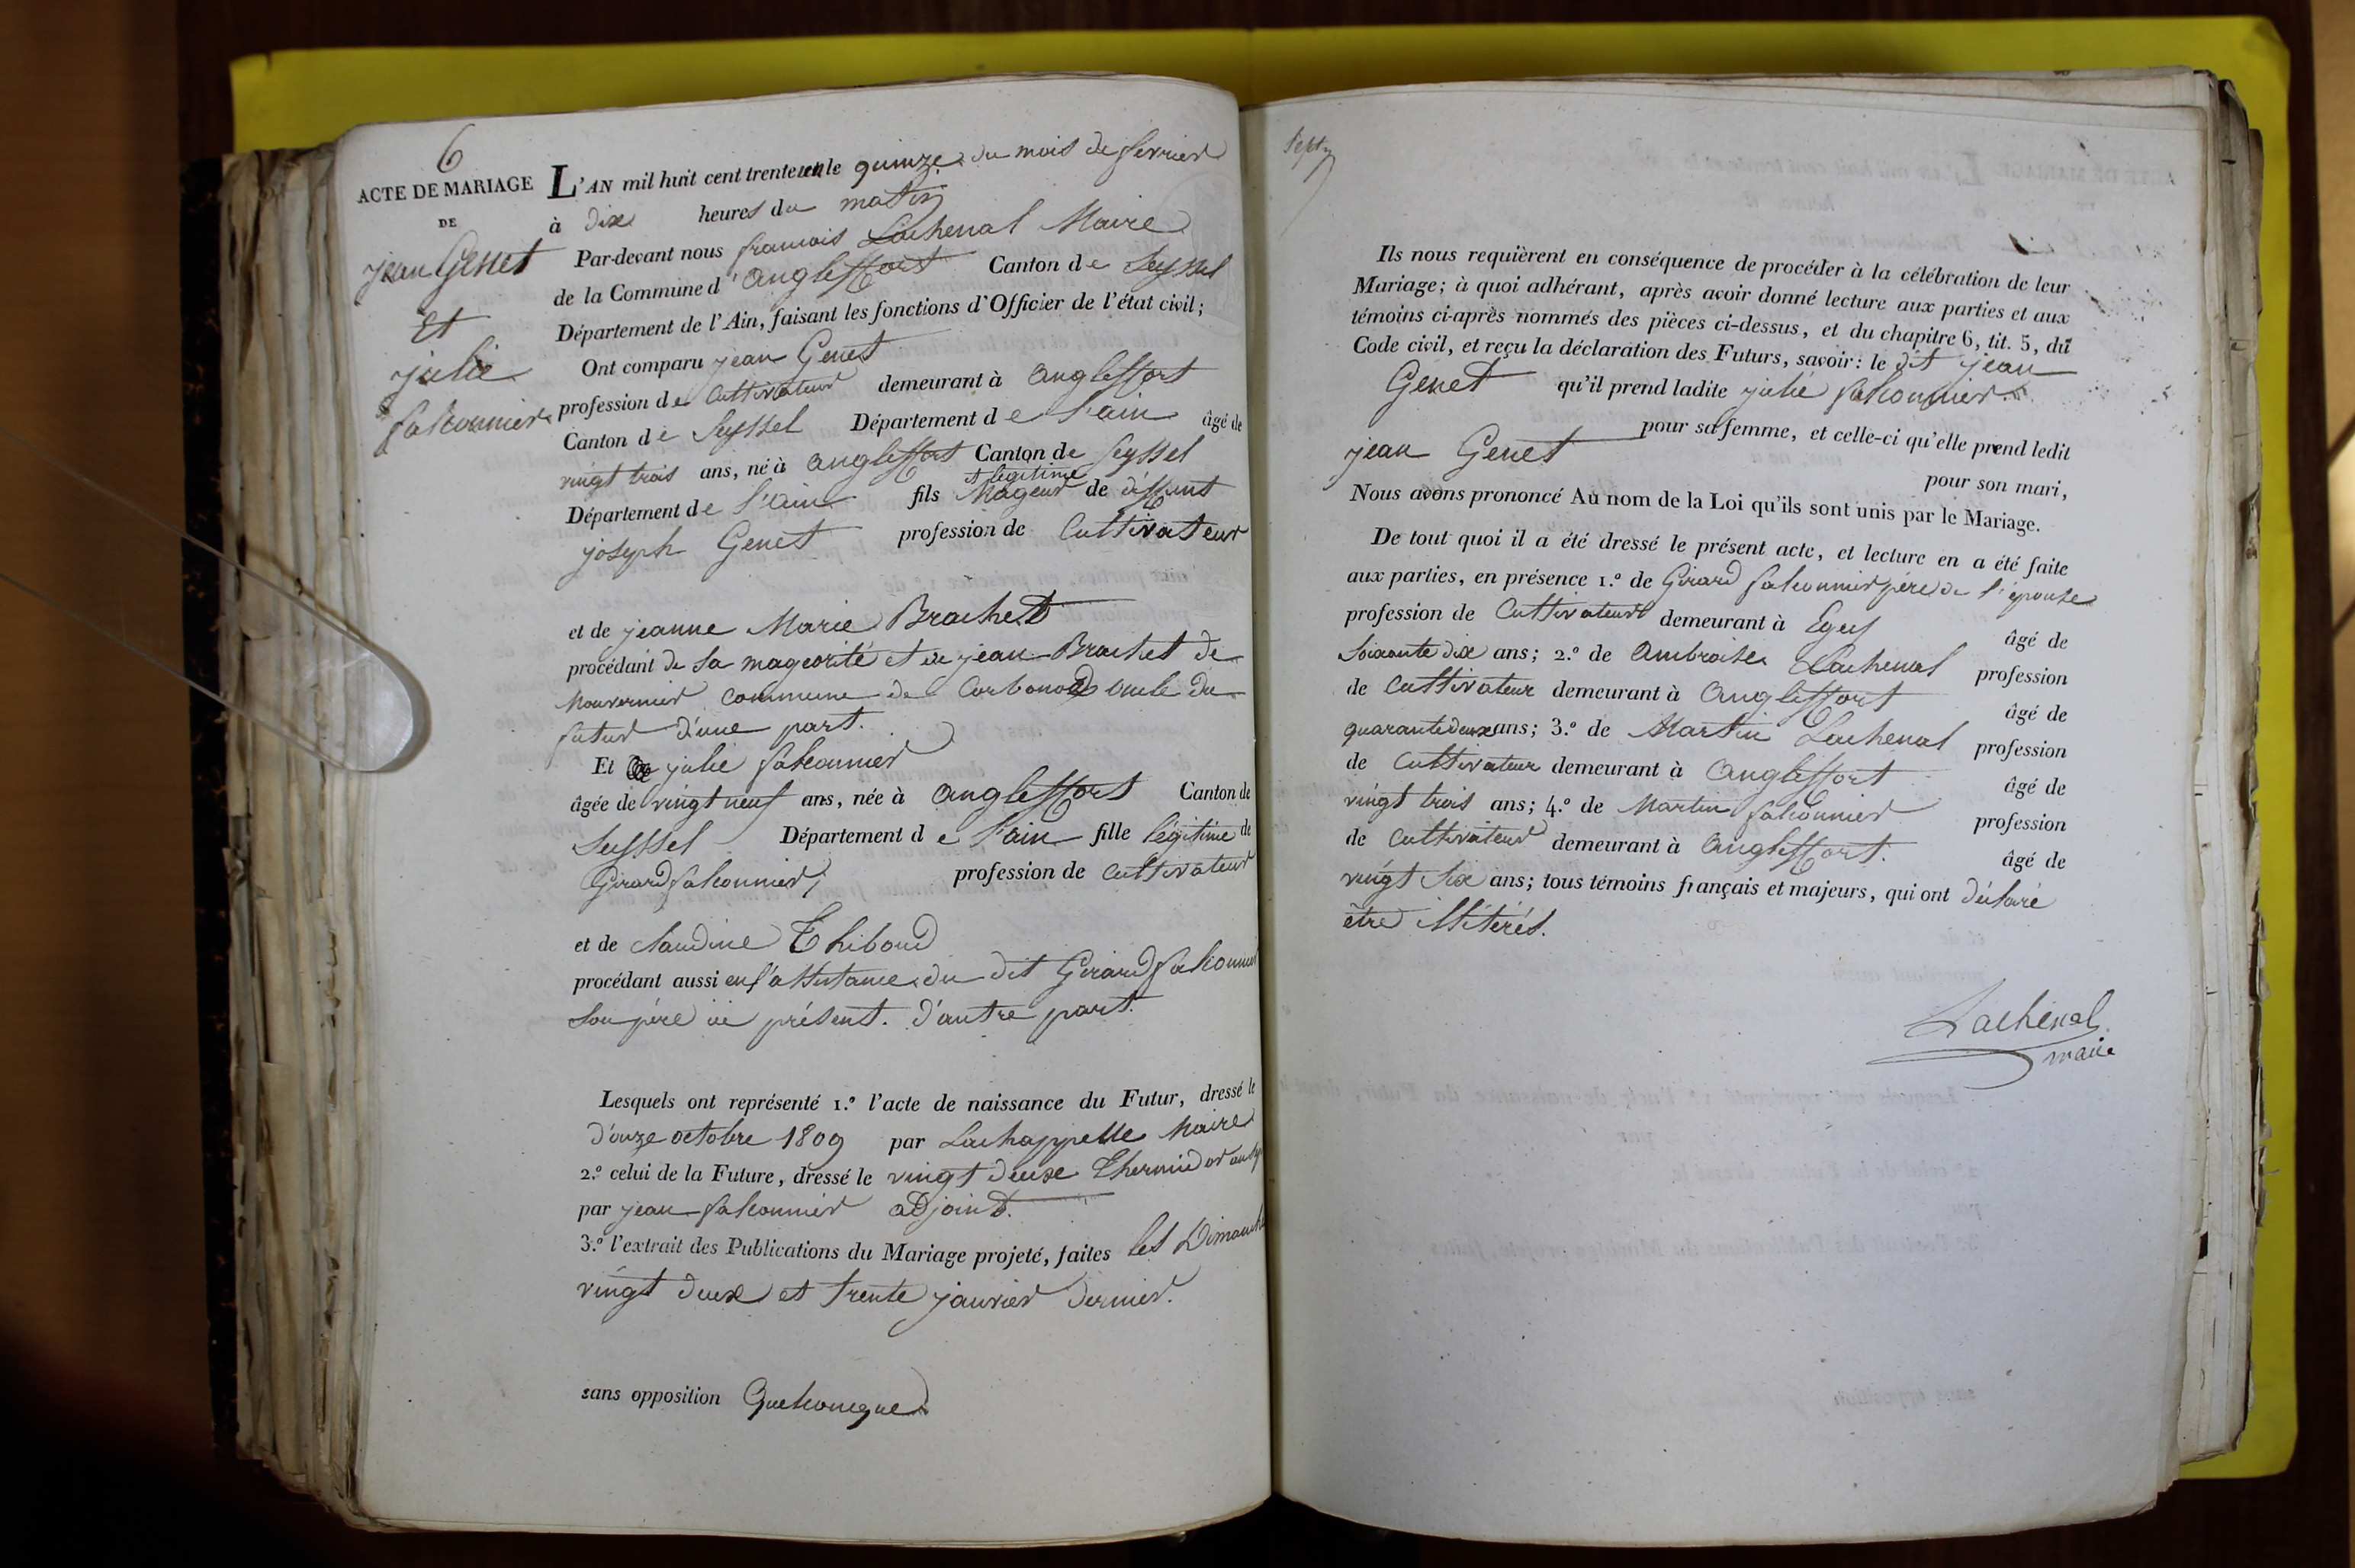 6
ACTE DE MARIAGE
DE
jean Genet
Et
julie
falconnier
L'AN mil huit cent trente un le quinze du mois de fevrier
à dix heures du matin
Par-devant nous francois Lachenal Maire
de la Commune d'angleffort Canton de Seyssel
Département de l'Ain, faisant les fonctions d'Officier de l'état civil;
Ont comparu jean Genet
profession de Cultivateur demeurant à angleffort
Canton de Seyssel Département de l'ain âgé de
vingt trois ans, né à angleffort Canton de Seyssel
et legitime
Département de l'ain fils Mageur de deffunt
joseph Genet profession de Cultivateur
et de jeanne Marie Brachet
procédant de sa mageorité et de jean Brachet de
commune de Corbonod oncle du
futur d'une part.
Et julie falconnier
âgée de vingt neuf ans, née à angleffort Canton de
Seyssel Département de l'ain fille légitime de
Girard falconnier profession de Cultivateur
et de Claudine Thiboud
procédant aussi en l'assistance du dit Girard falconnier
son père ici présent. d'autre part.
Lesquels ont représenté 1.º l'acte de naissance du Futur, dressé le
d'ouze octobre 1809 par Lachappelle Maire
2.º celui de la Future, dressé le vingt deux Thermidor an
par jean falconnier adjoint.
3.º l'extrait des Publications du Mariage projeté, faites les Dimanche
vingt deux et trente janvier dernier.
sans opposition Quelconque
Sept
Ils nous requièrent en conséquence de procéder à la célébration de leur
Mariage; à quoi adhérant, après avoir donné lecture aux parties et aux
témoins ci-après nommés des pièces ci-dessus, et du chapitre 6, tit. 5, du
Code civil, et reçu la déclaration des Futurs, savoir: le dit jean
Genet qu'il prend ladite julie falconnier
pour sa femme, et celle-ci qu'elle prend ledit
jean Genet pour son mari,
Nous avons prononcé Au nom de la Loi qu'ils sont unis par le Mariage.
De tout quoi il a été dressé le présent acte, et lecture en a été faite
aux parties, en présence 1.º de Girard falconnier père de l'épouse
profession de Cultivateur demeurant à âgé de
Soixante dix ans; 2.º de Ambroise Lachenal profession
de Cultivateur demeurant à Angleffort âgé de
quarante deux ans; 3.º de Martin Lachenal profession
de Cultivateur demeurant à Angleffort âgé de
vingt trois ans; 4.º de Martin falconnier profession
de Cultivateur demeurant à Angleffort. âgé de
vingt six ans; tous témoins français et majeurs, qui ont déclaré
être illitérés.
Lachenal
maire